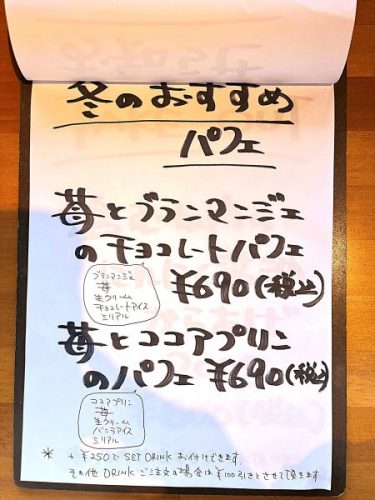 冬のおすすめ
パフェ
苺とブランマンジェ
のチョコレートパフェ
¥690(税込)
ブランマンジェ
苺
生クリーム
チョコレートアイス
ミリアル
苺とココアプリン
のパフェ ¥690(税込)
ココアプリン
苺
生クリーム
バニラアイス
ミリアル
* + ¥250で SET DRINK お付けできます。
その他 DRINK ご注文の場合は ¥100引きとさせて頂きます